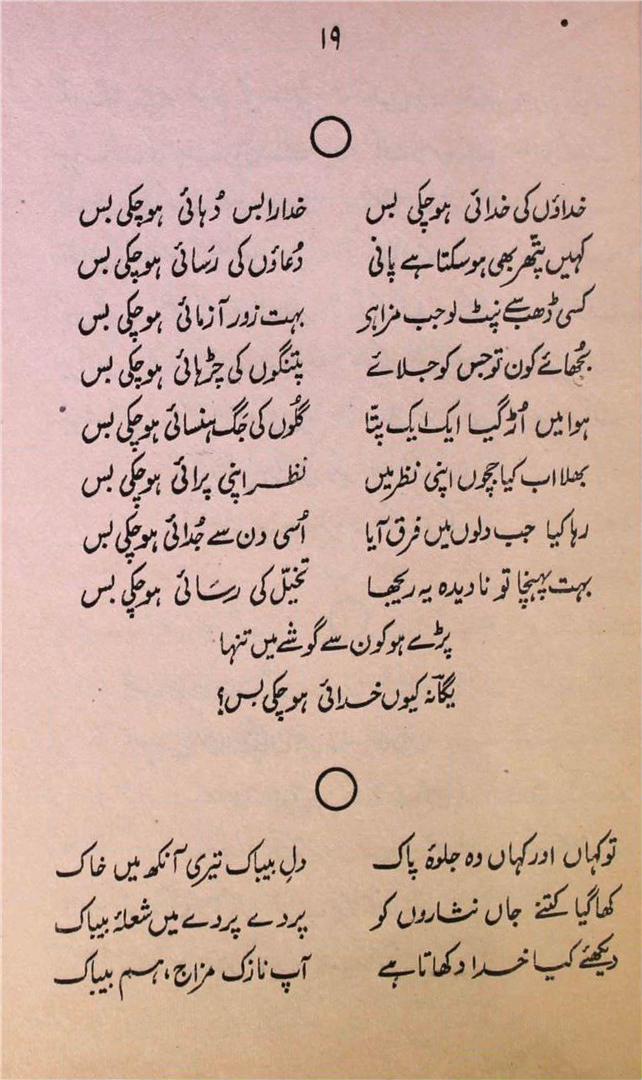 ۱۹
خداؤں کی خدائی ہوچکی بس خدارا بس دُہائی ہوچکی بس
کہیں پتّھر بھی ہوسکتا ہے پانی دُعاؤں کی رَسائی ہوچکی بس
کسی ڈھب سے نپٹ لو جب مزا ہو بہت زور آزمائی ہوچکی بس
بُجھائے کون تو جس کو جلائے پتنگوں کی چڑہائی ہوچکی بس
ہوا میں اُڑ گیا ایک ایک پتّا گلُوں کی جَگ ہنسائی ہوچکی بس
بھلا اب کیا جچوں اپنی نظر میں نظر اپنی پرائی ہوچکی بس
رہا کیا جب دلوں میں فرق آیا اُسی دن سے جُدائی ہوچکی بس
بہت پہنچا تو نادیدہ یہ ریجھا تخیّل کی رسَائی ہوچکی بس
پڑے ہو کون سے گوشے میں تنہا
یگانہؔ کیوں خدائی ہوچکی بس؟
تو کہاں اور کہاں وہ جلوۂ پاک دلِ بیباک تیری آنکھ میں خاک
کھا گیا کتنے جاں نثاروں کو پردے پردے میں شعلۂ بیباک
دیکھئے کیا خدا دکھاتا ہے آپ نازک مزاج، ہم بیباک